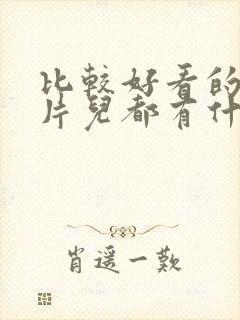 比較好看的
片兒都有什
肖遥一歎